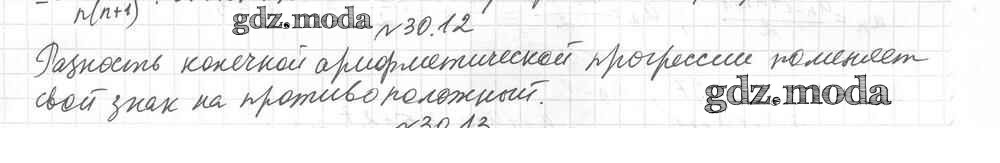 n(n+1)
gdz.moda
№30.12
Разность конечной арифметической прогрессии поменяет
свой знак на противоположный.
gdz.moda
№30.13